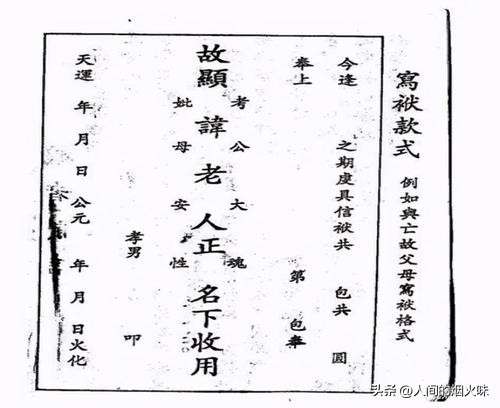 寫袱款式 例如與亡故父母寫袱格式
今逢 之期虔具信袱共 包共 圓
奉上 第 包奉
考 公 大 魂
故顯 諱 老 人正 名下收用
妣 母 安 性
孝男 叩
天運 年 月 日 公元 年 月 日火化
头条 @人间的烟火味